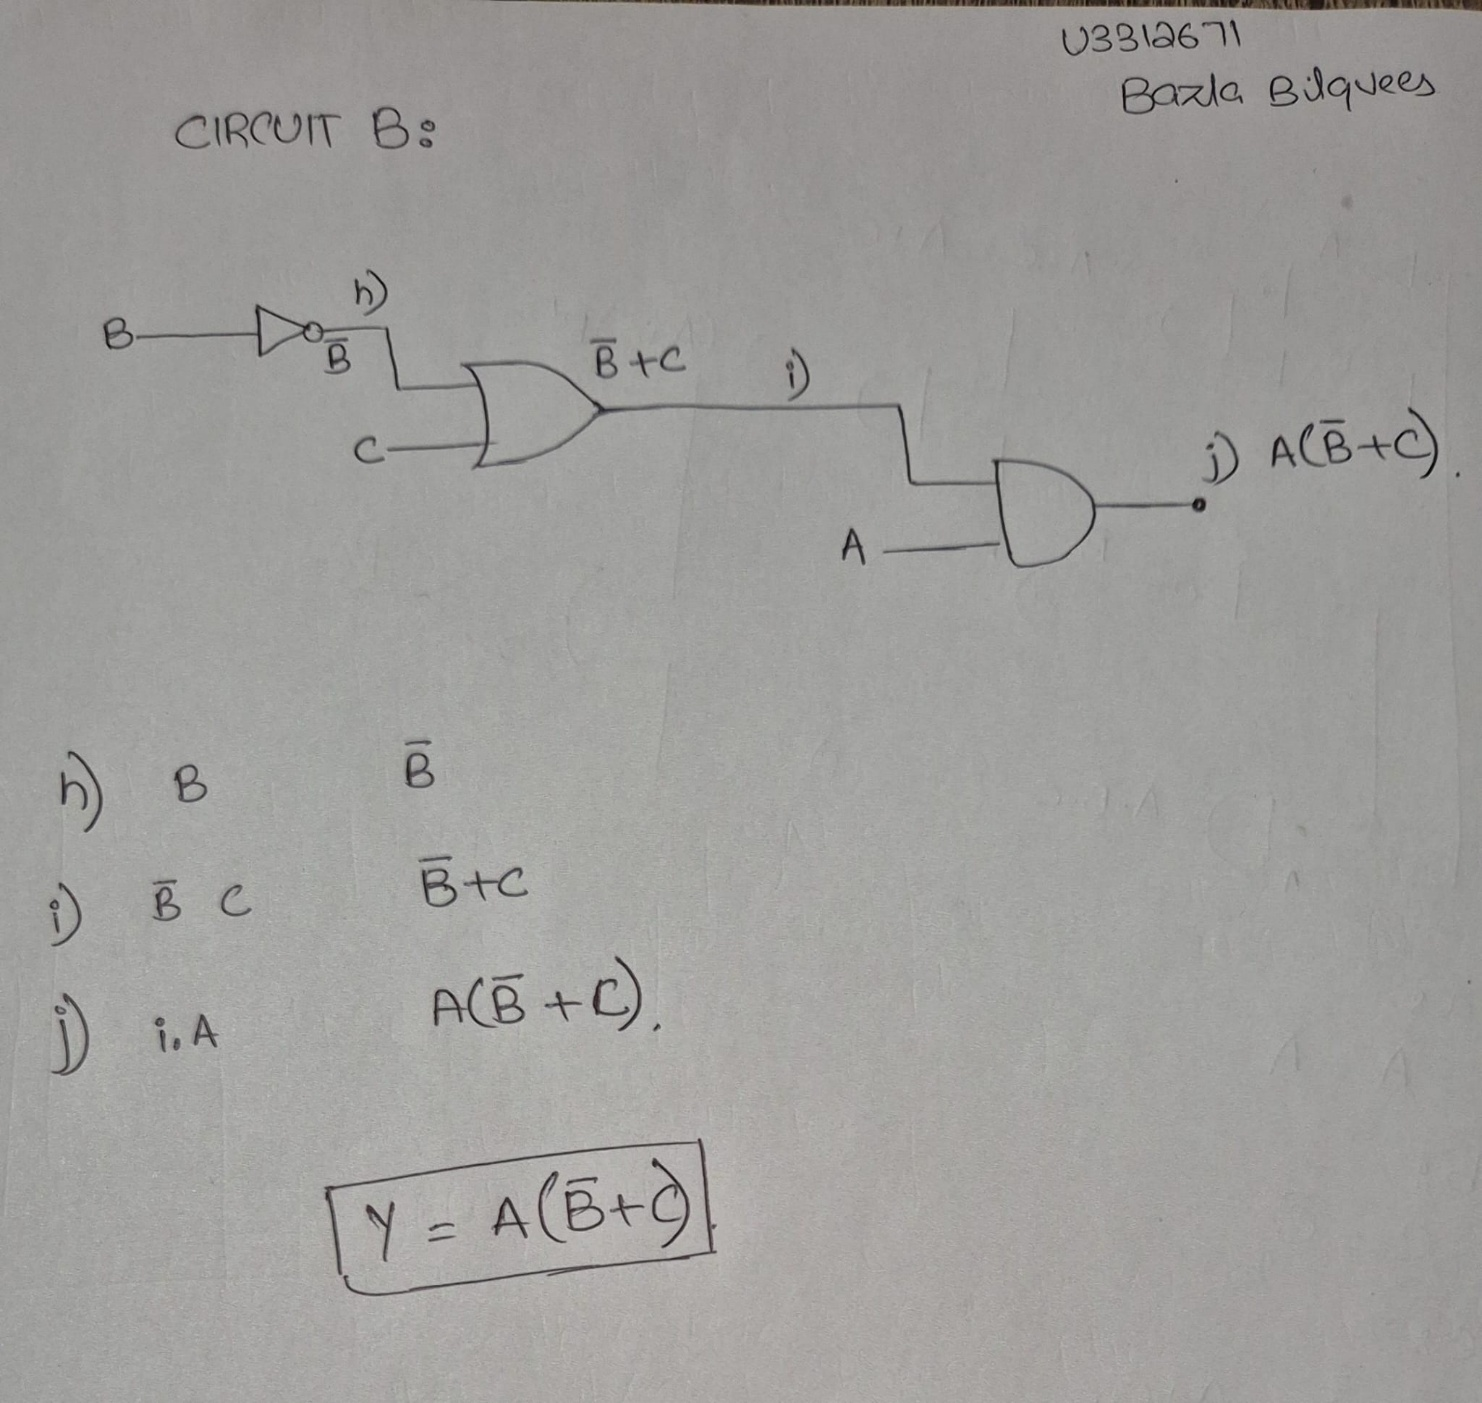 U3312671
Bazla Bilquees
CIRCUIT B:
h)
B
B̅
B̅+C
i)
C
j) A(B̅+C).
A
h) B B̅
i) B̅ C B̅+C
j) i.A A(B̅+C).
Y = A(B̅+C).